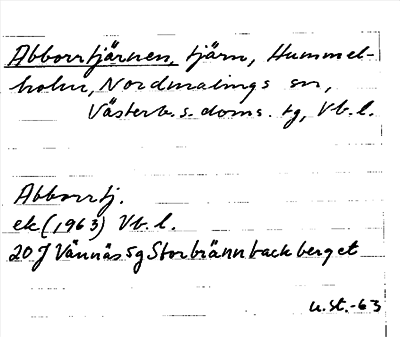 Abborrtjärnen, tjärn, Hummel-
holm, Nordmalings sn,
Västerb. s. doms. tg, Vb. l.
Abborrtj.
ek (1963) Vb. l.
20J Vännäs 5g Storbrännbackberget
u.st.-63